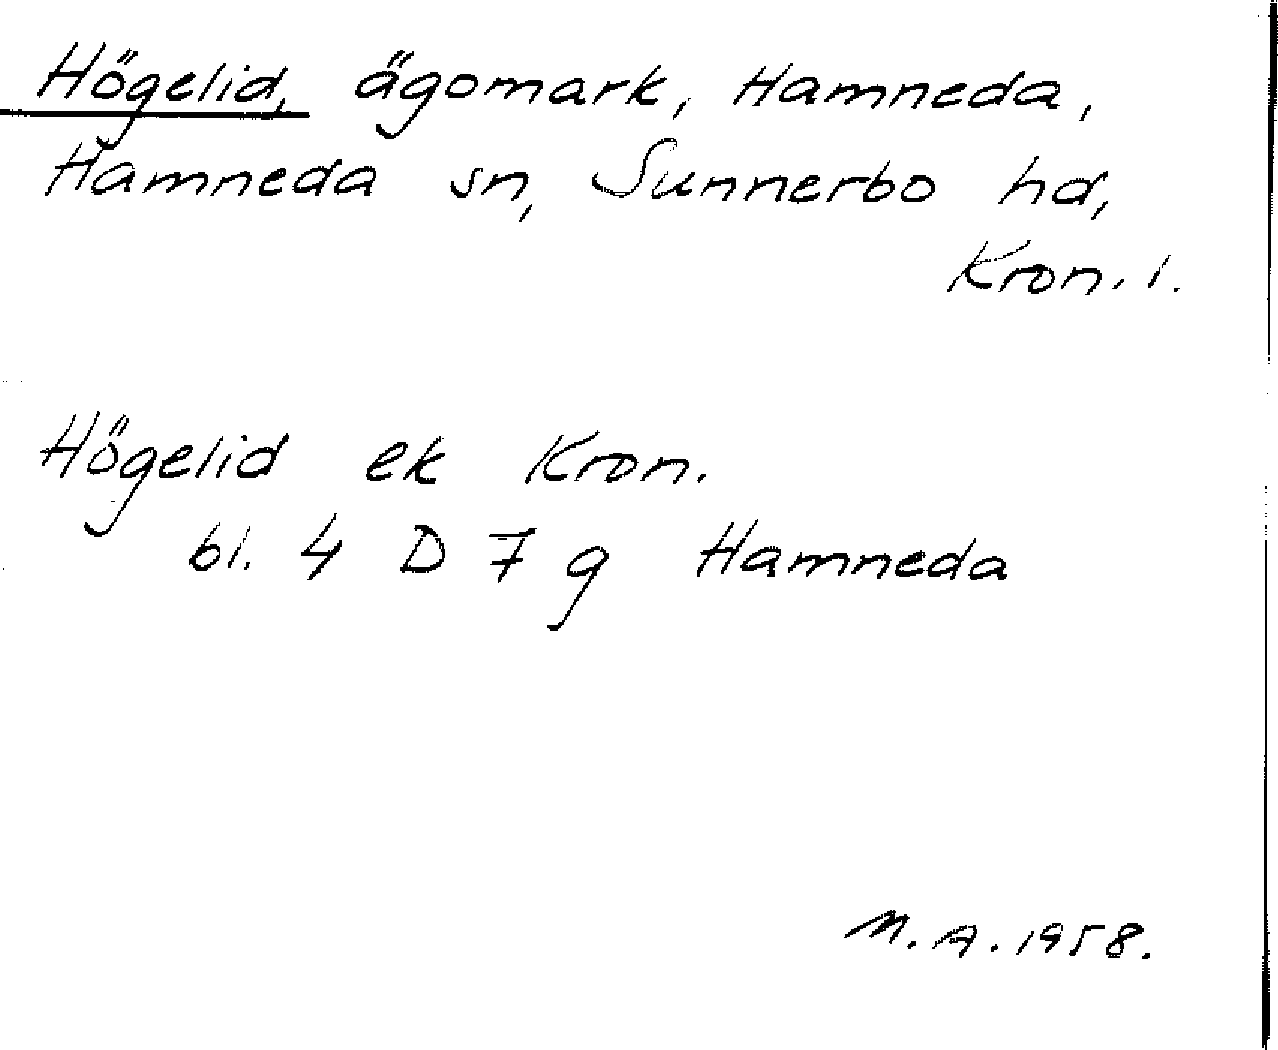 Högelid, ägomark, Hamneda,
Hamneda sn, Sunnerbo hd,
Kron. l.
Högelid ek Kron.
bl. 4 D 7 g Hamneda
M.A. 1958.